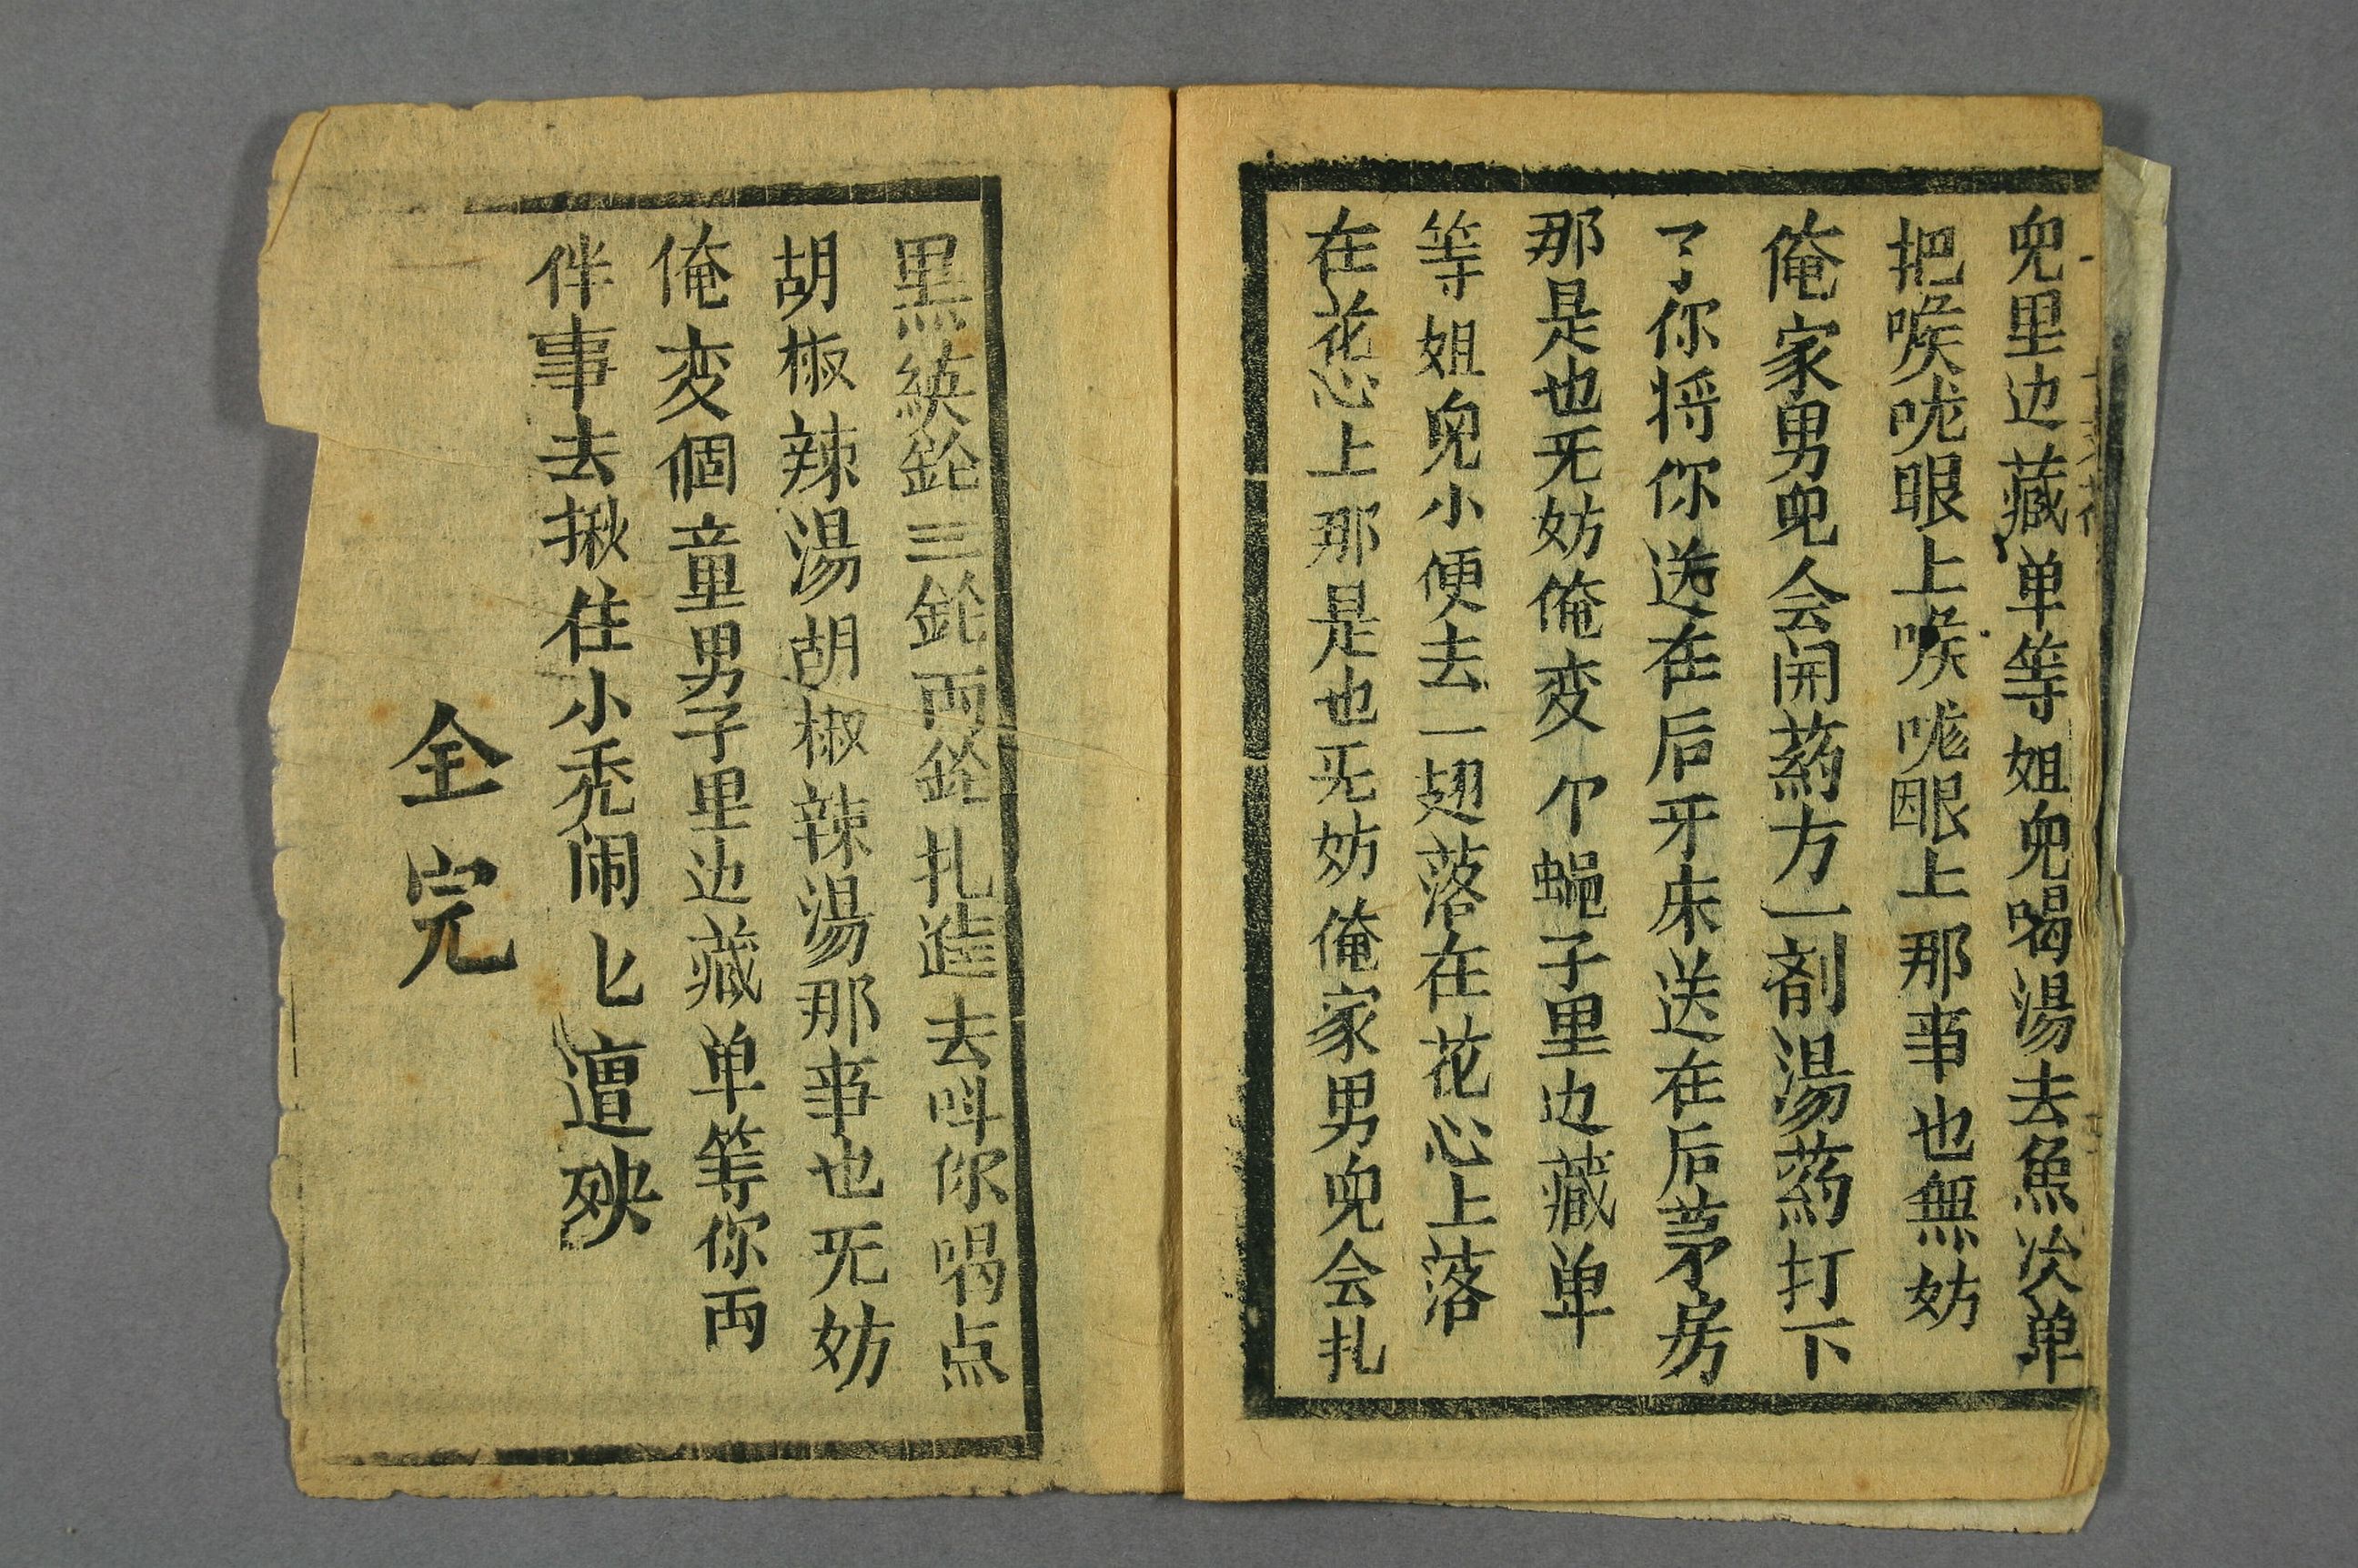 児里边藏单等姐児喝湯去魚次单
把喉咙眼上喉咙眼上那事也無妨
俺家男児会開药方一剤湯药打下
了你将你送在后牙床送在后茅房
那是也旡妨俺变个蝇子里边藏单
等姐児小便去一翅落在花心上落
在花心上那是也旡妨俺家男児会扎
黑纓鎗三鎗両鎗扎進去呌你喝点
胡椒辣湯胡椒辣湯那事也旡妨
俺变個童男子里边藏单等你両
伴事去揪住小秃闹匕遭殃
全完